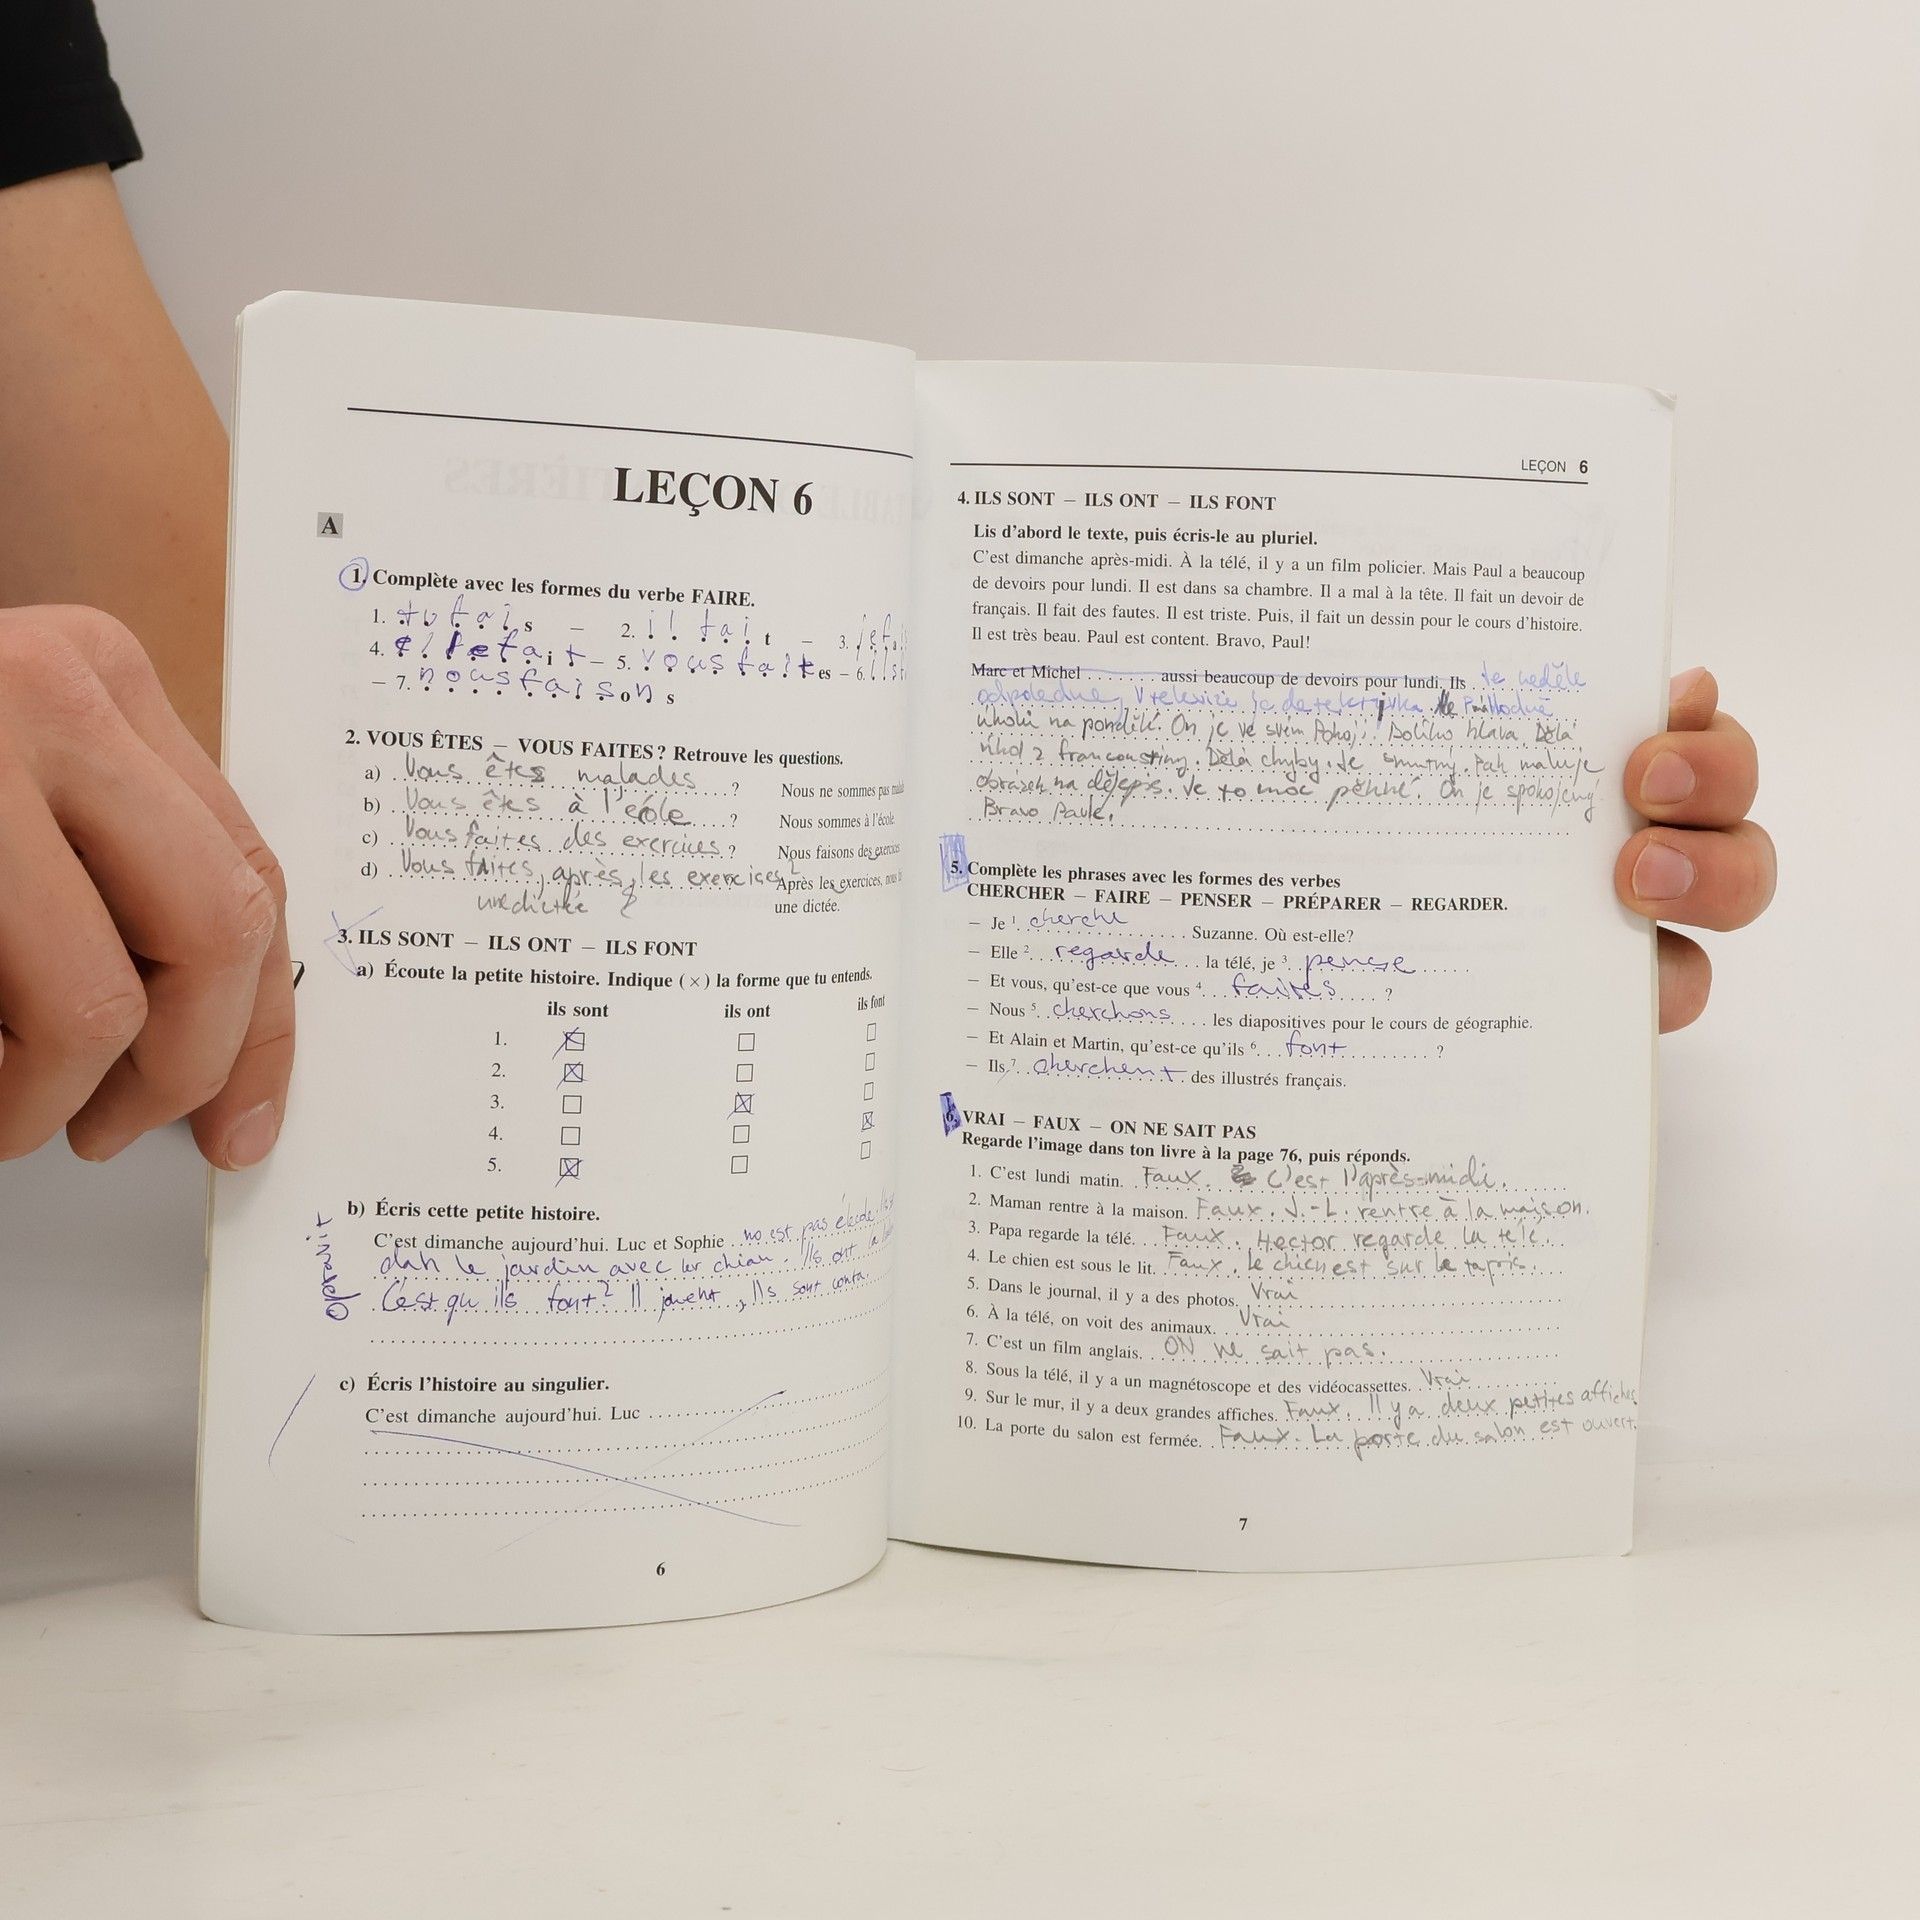 LEÇON 6
A
1. Complète avec les formes du verbe FAIRE.
1. tu fais – 2. il fait – 3.
4. elle fait – 5. vous faites – 6. ils
– 7. nous faisons
2. VOUS ÊTES – VOUS FAITES? Retrouve les questions.
a) Vous êtes malades ? Nous ne sommes pas
b) Vous êtes à l'école ? Nous sommes à l'école.
c) Vous faites des exercices ? Nous faisons des exercices
d) Vous faites, après les exercises Après les exercices, nous
une dictée ? une dictée.
3. ILS SONT – ILS ONT – ILS FONT
a) Écoute la petite histoire. Indique (×) la forme que tu entends.
ils sont ils ont ils font
1.
2.
3.
4.
5.
b) Écris cette petite histoire.
C'est dimanche aujourd'hui. Luc et Sophie
le jardin avec Ils ont la
ils font? Il Ils sont
Opravit
c) Écris l'histoire au singulier.
C'est dimanche aujourd'hui. Luc
6
LEÇON 6
4. ILS SONT – ILS ONT – ILS FONT
Lis d'abord le texte, puis écris-le au pluriel.
C'est dimanche après-midi. À la télé, il y a un film policier. Mais Paul a beaucoup
de devoirs pour lundi. Il est dans sa chambre. Il a mal à la tête. Il fait un devoir de
français. Il fait des fautes. Il est triste. Puis, il fait un dessin pour le cours d'histoire.
Il est très beau. Paul est content. Bravo, Paul!
Marc et Michel ....... aussi beaucoup de devoirs pour lundi. Ils Je neděle
odpoledne, V televizi je detektivka
úkolů na pondělí. On je ve svém Pokoji. Bolí ho hlava. Dělá
úkol z francouštiny. Dělá chyby. Je smutný. Pak maluje
obrázek na dějepis. Je to moc pěkné. On je spokojený
Bravo Paule.
5. Complète les phrases avec les formes des verbes
CHERCHER – FAIRE – PENSER – PRÉPARER – REGARDER.
– Je ¹ cherche Suzanne. Où est-elle?
– Elle ² regarde la télé, je ³ pense
– Et vous, qu'est-ce que vous ⁴ faites ?
– Nous ⁵ cherchons les diapositives pour le cours de géographie.
– Et Alain et Martin, qu'est-ce qu'ils ⁶ font ?
– Ils ⁷ cherchent des illustrés français.
6. VRAI – FAUX – ON NE SAIT PAS
Regarde l'image dans ton livre à la page 76, puis réponds.
1. C'est lundi matin. Faux. C'est l'après-midi.
2. Maman rentre à la maison. Faux. J.-L. rentre à la maison.
3. Papa regarde la télé. Faux. Hector regarde la télé.
4. Le chien est sous le lit. Faux. Le chien est sur le tapis.
5. Dans le journal, il y a des photos. Vrai
6. À la télé, on voit des animaux. Vrai
7. C'est un film anglais. ON ne sait pas.
8. Sous la télé, il y a un magnétoscope et des vidéocassettes. Vrai
9. Sur le mur, il y a deux grandes affiches. Faux. Il y a deux petites affiches
10. La porte du salon est fermée. Faux. La porte du salon est ouvert.
7